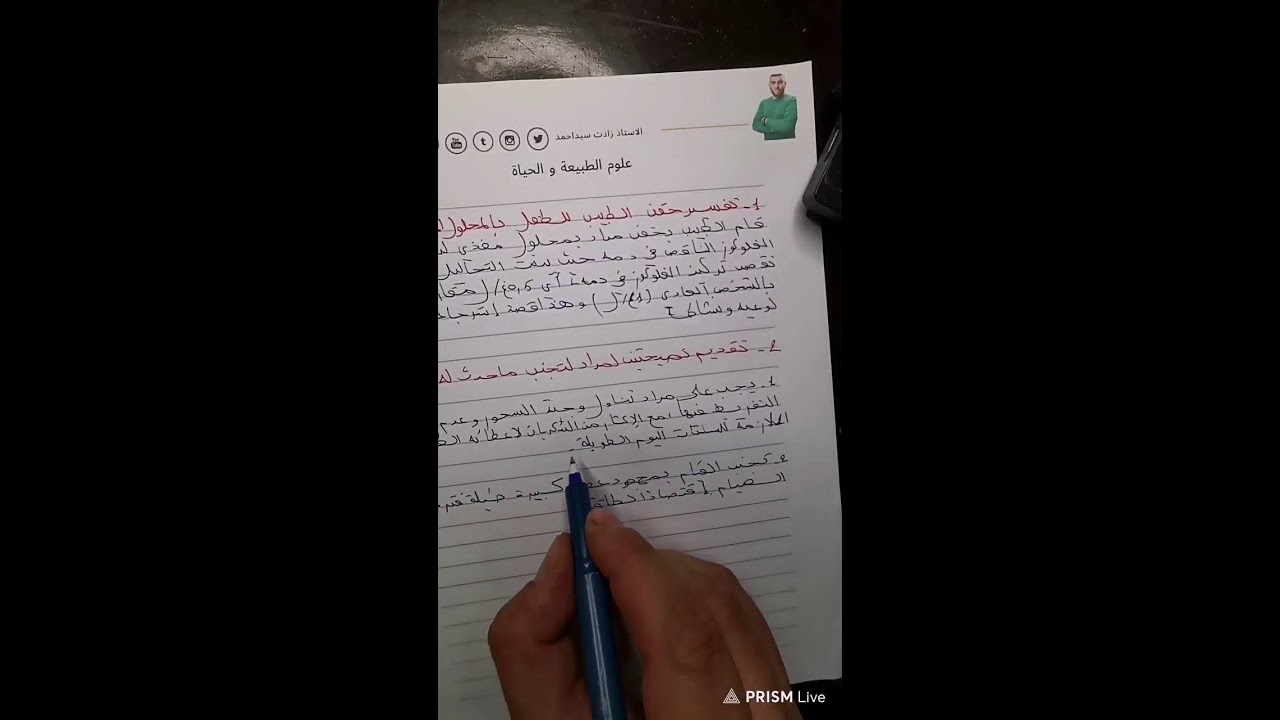 الاستاذ زادت سيداحمد
علوم الطبيعة و الحياة
1- تفسير حقن الطبيب للطفل بالمحلول
قام الطبيب بحقن مراد بمحلول مغذي
الغلوكوز الناقص في دمه حيث بينت التحاليل
نقص تركيز الغلوكوز في دمه أي 0,5غ/ل
بالشخص العادي (1غ/ل) وهذا قصد إسترجا
لوعيه ونشاطه
2- تقديم نصيحتين لمراد لتجنب ماحدث له
1- يجب على مراد تناول وجبة السحور وعدم
التفريط فيها، مع الإكثار من السكريات لإعطائه
اللازمة لساعات اليوم الطويلة.
2- تجنب القيام بمجهود كبيرة طيلة
الصيام إقتصادا
PRISM Live